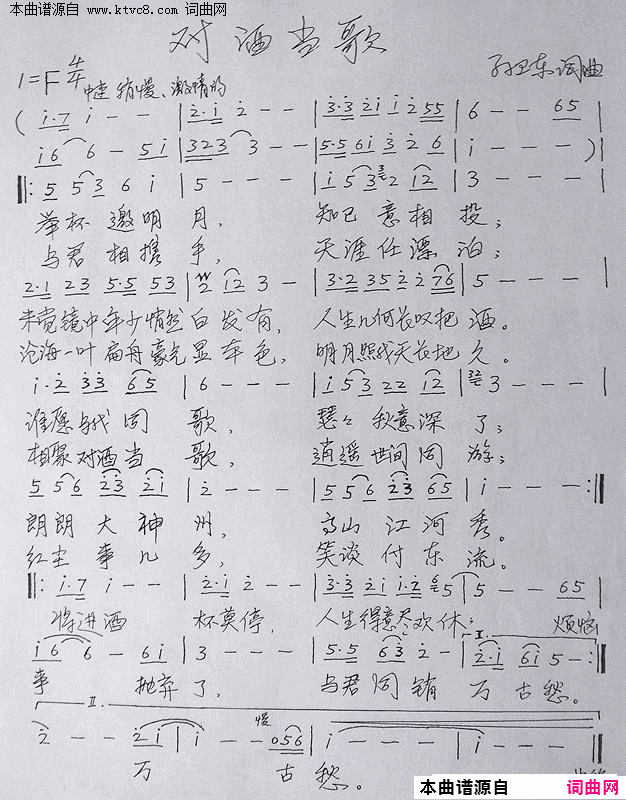 本曲谱源自
www.ktvc8.com 词曲网
对酒当歌
1=F 4/4 中速 稍慢、激情的
孙卫东词曲
( i·7 i - - | 2·i 2 - - | 3·3 2i i 2 55 | 6 - - 65 |
i6 6 - 5i | 323 3 - - | 5·5 6i 3 2 6 | i - - - ) |
||: 5 5 3 6 i | 5 - - - | i 5 3 2 i2 | 3 - - - |
举杯 邀明 月, 知己 意相 投;
与君 相携 手, 天涯 任漂 泊;
2·1 23 5·5 53 | 2 12 3 - | 3·2 35 2 2 76 | 5 - - - |
未觉镜中年少悄然白发有, 人生几何长叹把 酒。
沧海一叶扁舟豪气显本色, 明月照我天长地 久。
i·2 33 65 | 6 - - - | i 5 3 22 i2 | 3 - - - |
谁愿与我 同 歌, 瑟瑟 秋意深 了;
相聚对酒当 歌, 逍遥 世间同 游;
5 5 6 23 2i | 2 - - - | 5 5 6 23 65 | i - - - :||
朗朗 大 神 州, 高山 江河 秀。
红尘 事 几 多, 笑谈 付东 流。
||: i·7 i - - | 2·i 2 - - | 3·3 2i i·2 5 | 5 - - 65 |
将进酒 杯莫停, 人生得意尽欢休; 烦恼
I.
i6 6 - 6i | 3 - - - | 5·5 63 2 - | 2·i 6i 5 - :||
事 抛弃 了, 与君同销 万 古 愁。
II.
慢
2 - - 2i | i - - 056 | i - - - | i - - - :||
万 古 愁。
本曲谱源自 词曲网